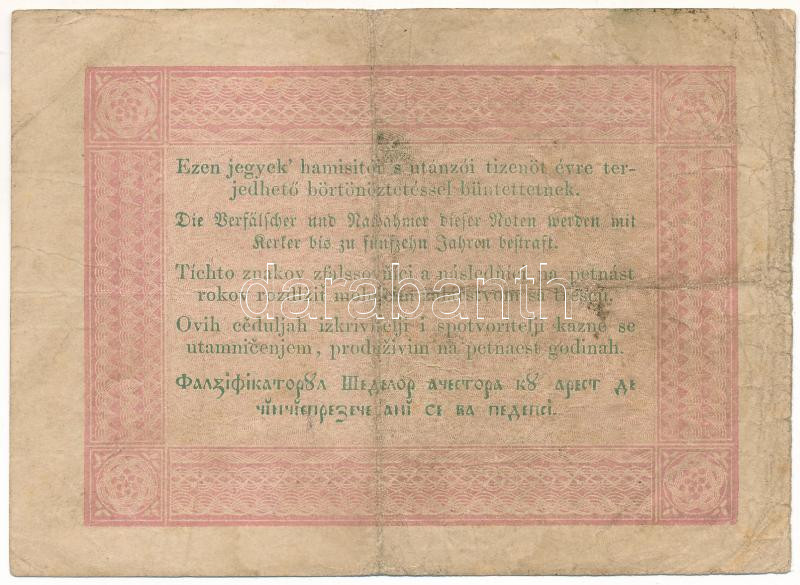 Ezen jegyek' hamisitói s utánzói tizenöt évre ter-
jedhető börtönöztetéssel büntettetnek.
Die Verfälscher und Nachahmer dieser Noten werden mit
Kerker bis zu fünfzehn Jahren bestraft.
Tíchto znakov a na petnást
rokov sa
Ovih céduljah i spotvoritelji kazne se
utamničenjem, produživim na petnaest godinah.
Фалзіфікаторꙋл Шеделор ачестора кꙋ арест де
чїнчїспрезече анї се ва педепсі.
darabanth